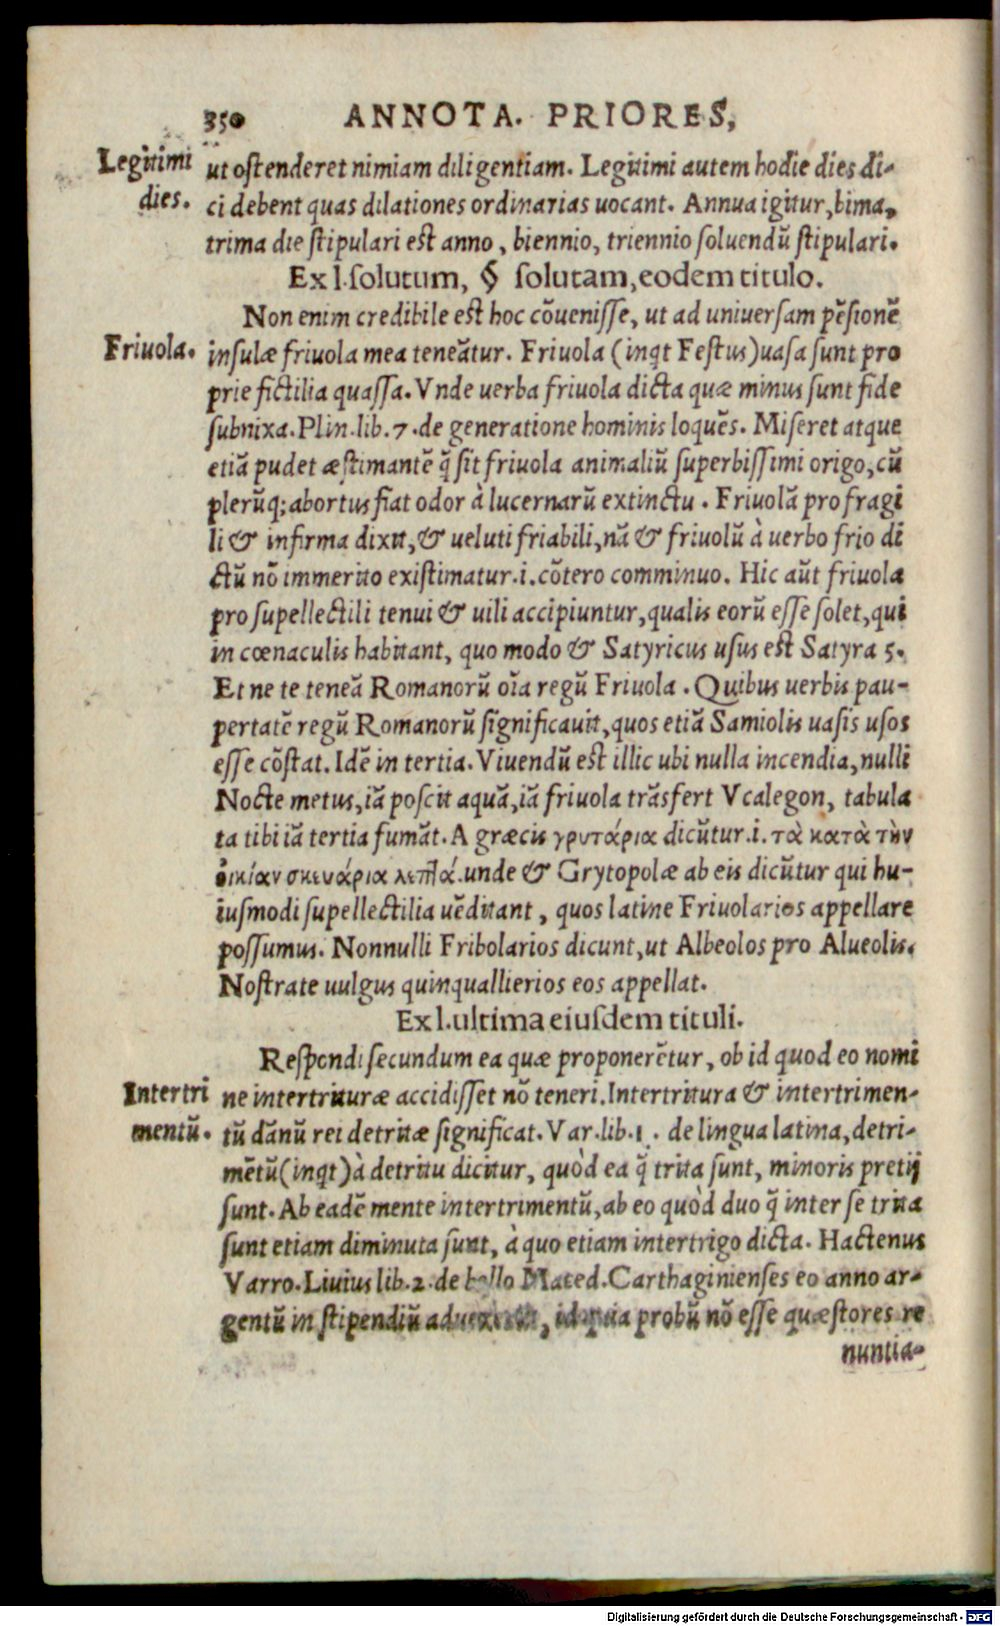 350 ANNOTA. PRIORES,
Legitimi
dies.
ut ostenderet nimiam diligentiam. Legitimi autem hodie dies di-
ci debent quas dilationes ordinarias uocant. Annua igitur, bima,
trima die stipulari est anno, biennio, triennio soluendū stipulari.
Ex l. solutum, § solutam, eodem titulo.
Non enim credibile est hoc cōuenisse, ut ad uniuersam pēsionē
Friuola.
insulæ friuola mea teneātur. Friuola (inqt Festus) uasa sunt pro
prie fictilia quassa. Vnde uerba friuola dicta quæ minus sunt fide
subnixa. Plin. lib. 7. de generatione hominis loquēs. Miseret atque
etiā pudet æstimantē q̄ sit friuola animaliū superbissimi origo, cū
plerūq; abortus fiat odor à lucernarū extinctu. Friuolā pro fragi
li & infirma dixit, & ueluti friabili, nā & friuolū à uerbo frio di
ctū nō immerito existimatur .i. cōtero comminuo. Hic aūt friuola
pro supellectili tenui & uili accipiuntur, qualis eorū esse solet, qui
in cœnaculis habitant, quo modo & Satyricus usus est Satyra 5.
Et ne te teneā Romanorū oīa regū Friuola. Quibus uerbis pau-
pertatē regū Romanorū significauit, quos etiā Samiolis uasis usos
esse cōstat. Idē in tertia. Viuendū est illic ubi nulla incendia, nulli
Nocte metus, iā poscit aquā, iā friuola trāsfert Vcalegon, tabula
ta tibi iā tertia fumāt. A græcis γρυτάρια dicūtur .i. τὰ κατὰ τὴν
ὀικίαν σκευάρια λεπτά. unde & Grytopolæ ab eis dicūtur qui hu-
iusmodi supellectilia uēditant, quos latine Friuolarios appellare
possumus. Nonnulli Fribolarios dicunt, ut Albeolos pro Alueolis.
Nostrate uulgus quinquallierios eos appellat.
Ex l. ultima eiusdem tituli.
Respondi secundum ea quæ proponerētur, ob id quod eo nomi
Intertri
mentū.
ne intertrituræ accidisset nō teneri. Intertritura & intertrimen-
tū dānū rei detritæ significat. Var. lib. 1. de lingua latina, detri-
mētū (inqt) à detritu dicitur, quòd ea q̄ trita sunt, minoris pretij
sunt. Ab eadē mente intertrimentū, ab eo quòd duo q̄ inter se trita
sunt etiam diminuta sunt, à quo etiam intertrigo dicta. Hactenus
Varro. Liuius lib. 2. de bello Maced. Carthaginienses eo anno ar-
gentū in stipendiū aduexerūt, id quia probū nō esse quæstores re
nuntia-
Digitalisierung gefördert durch die Deutsche Forschungsgemeinschaft - DFG